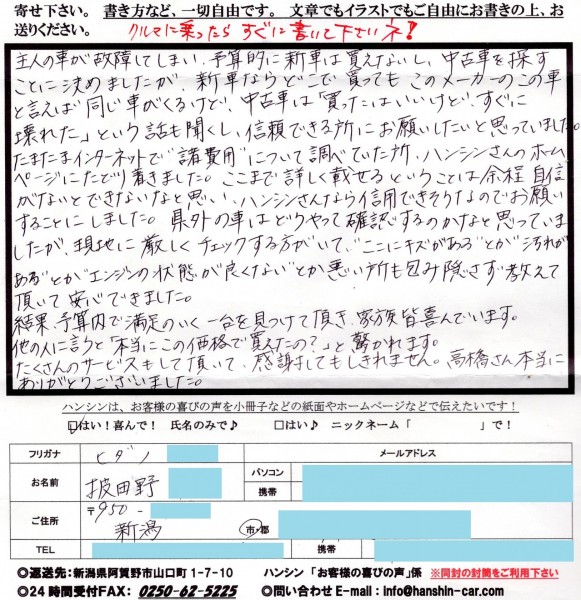 寄せ下さい。 書き方など、一切自由です。 文章でもイラストでもご自由にお書きの上、お
送りください。 クルマに乗ったら すぐに 書いて下さいネ!
主人の車が故障してしまい、予算的に新車は買えないし、中古車を探す
ことに決めましたが、新車ならどこで買っても このメーカーのこの車
と言えば同じ車がくるけど、中古車は"買ったはいいけど、すぐに
壊れた」という話も聞くし、信頼できる所にお願いしたいと思っていました。
たまたまインターネットで"諸費用"について調べていた所、ハンシンさんのホーム
ページにたどり着きました。ここまで詳しく載せるということは余程自信
がないとできないなと思い、ハンシンさんなら信用できそうなのでお願い
することにしました。県外の車はどうやって確認するのかなと思っていま
したが、現地に厳しくチェックする方がいて、"ここにキズがある"とか"汚れが
ある"とか"エンジンの状態が良くない"とか悪い所も包み隠さず教えて
頂いて安心できました。
結果、予算内で満足のいく一台を見つけて頂き、家族皆喜んでいます。
他の人に言うと"本当にこの価格で買えたの?」と驚かれます。
たくさんのサービスもして頂いて、感謝してもしきれません。高橋さん本当に
ありがとうございました。
ハンシンは、お客様の喜びの声を小冊子などの紙面やホームページなどで伝えたいです!
□はい!喜んで! 氏名のみで♪ □はい♪ ニックネーム「 」で!
フリガナ ヒダノ メールアドレス
お名前 披田野 パソコン
携帯
ご住所 〒950-
新潟 市・郡
TEL 携帯
◎返送先:新潟県阿賀野市山口町1-7-10 ハンシン 「お客様の喜びの声」係 ※同封の封筒をご利用下さい
◎24時間受付FAX: 0250-62-5225 ◎問い合わせ E-mail : info@hanshin-car.com